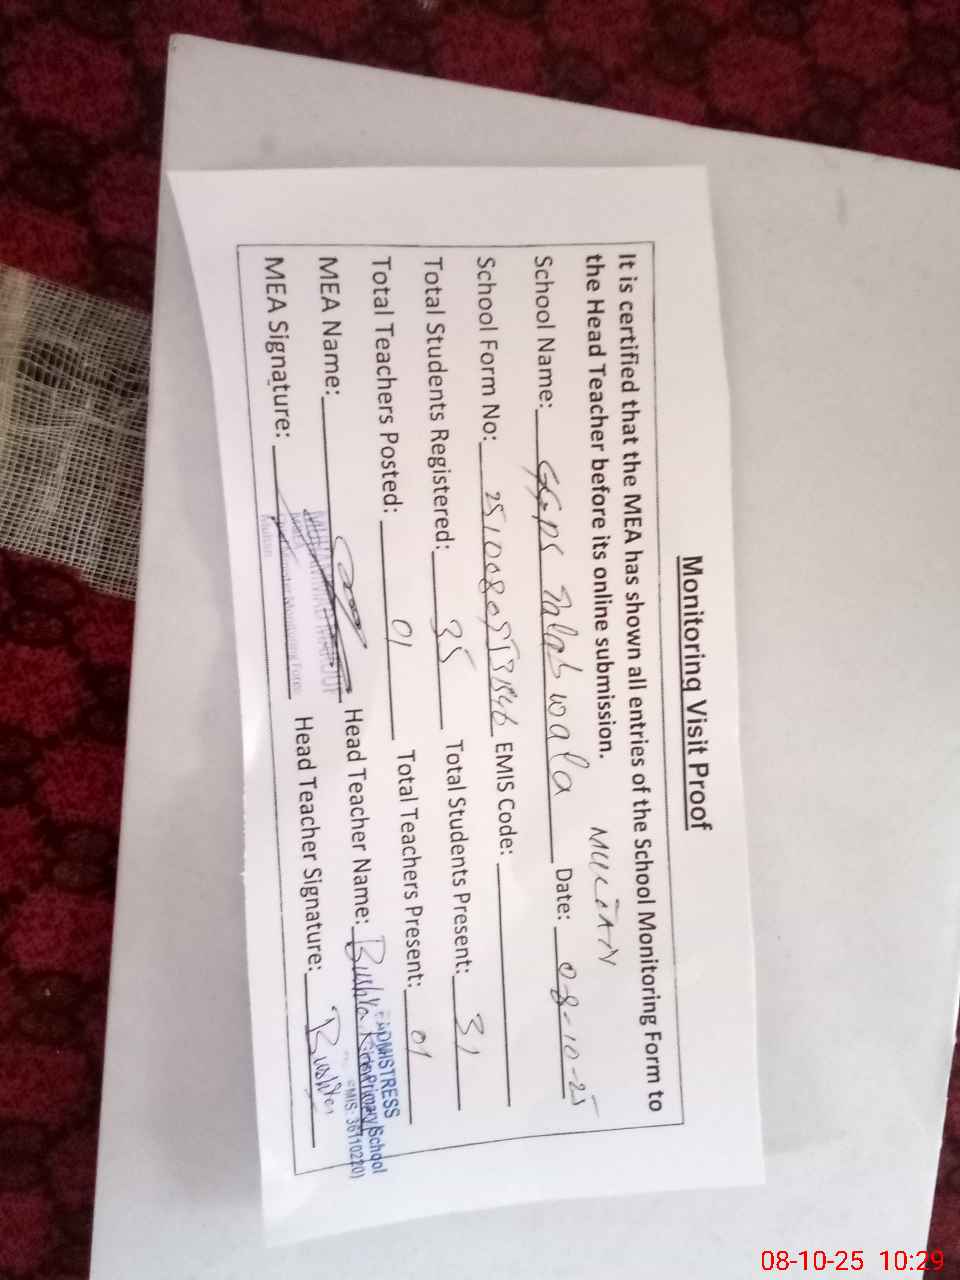 Monitoring Visit Proof
It is certified that the MEA has shown all entries of the School Monitoring Form to
the Head Teacher before its online submission.
MULTAN
School Name: GGPS Talab wala Date: 08-10-25
School Form No: EMIS Code:
Total Students Registered: 35 Total Students Present: 31
Total Teachers Posted: 01 Total Teachers Present: 01
MEA Name: Head Teacher Name: Bushra
MEA Signature: Head Teacher Signature: Bushra
MUHAMMAD
MEA
Multan
Primary School
EMIS: 36110220)
08-10-25 10:29